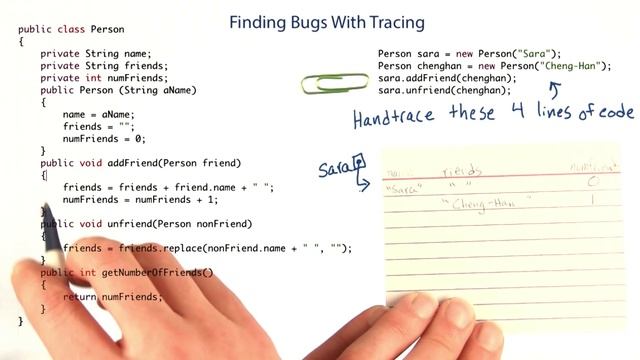 Finding Bugs With Tracing
public class Person
{
private String name;
private String friends;
private int numFriends;
public Person (String aName)
{
name = aName;
friends = "";
numFriends = 0;
}
public void addFriend(Person friend)
{
friends = friends + friend.name + " ";
numFriends = numFriends + 1;
}
public void unfriend(Person nonFriend)
{
friends = friends.replace(nonFriend.name + " ", "");
}
public int getNumberOfFriends()
{
return numFriends;
}
}
Person sara = new Person("Sara");
Person chenghan = new Person("Cheng-Han");
sara.addFriend(chenghan);
sara.unfriend(chenghan);
Handtrace these 4 lines of code
Sara
friends
"Sara" " " 0
"Cheng-Han " 1